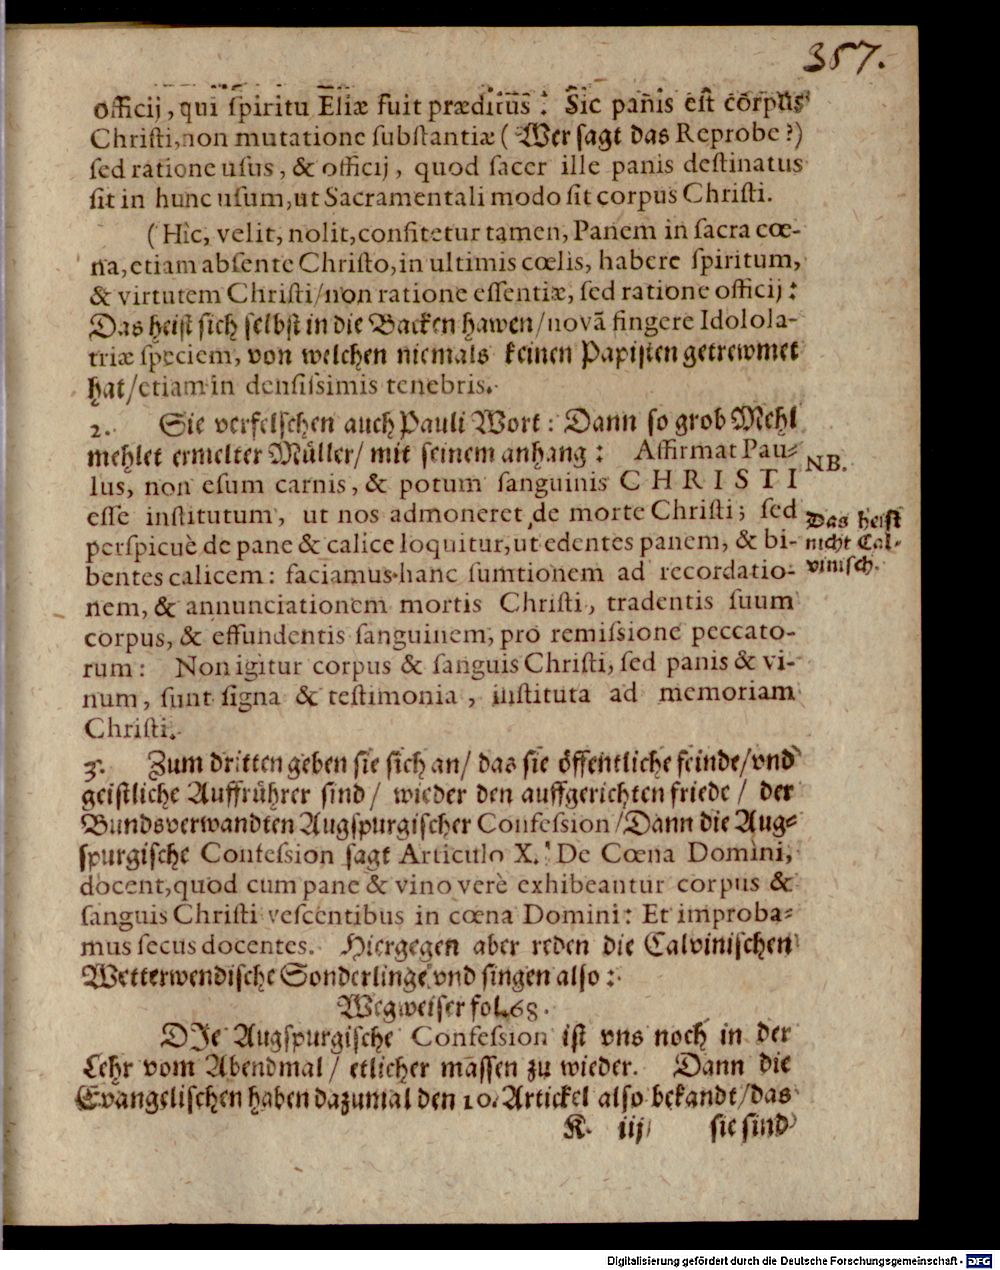 357.
officij, qui spiritu Eliæ fuit præditus: Sic panis est corpus
Christi, non mutatione substantiæ (Wer sagt das Reprobe?)
sed ratione usus, & officij, quod sacer ille panis destinatus
sit in hunc usum, ut Sacramentali modo sit corpus Christi.
(Hic, velit, nolit, confitetur tamen, Panem in sacra cœ-
na, etiam absente Christo, in ultimis cœlis, habere spiritum,
& virtutem Christi/non ratione essentiæ, sed ratione officij:
Das heist sich selbst in die Backen hawen/novã fingere Idolola-
triæ speciem, von welchen niemals keinen Papisten getrewmet
hat/etiam in densissimis tenebris.
2. Sie verfelschen auch Pauli Wort: Dann so grob Mehl
mehlet ermelter Müller/ mit seinem anhang: Affirmat Pau-
NB.
lus, non esum carnis, & potum sanguinis CHRISTI
esse institutum, ut nos admoneret de morte Christi; sed
Das heist
perspicuè de pane & calice loquitur, ut edentes panem, & bi-
nicht Cal-
bentes calicem: faciamus hanc sumtionem ad recordatio-
vinisch.
nem, & annunciationem mortis Christi, tradentis suum
corpus, & effundentis sanguinem, pro remissione peccato-
rum: Non igitur corpus & sanguis Christi, sed panis & vi-
num, sunt signa & testimonia, instituta ad memoriam
Christi.
3. Zum dritten geben sie sich an/ das sie öffentliche feinde/vnd
geistliche Auffrührer sind/ wieder den auffgerichten friede/ der
Bundsverwandten Augspurgischer Confession/Dann die Aug-
spurgische Confession sagt Articulo X. De Cœna Domini,
docent, quod cum pane & vino verè exhibeantur corpus &
sanguis Christi vescentibus in cœna Domini: Et improba-
mus secus docentes. Hiergegen aber reden die Calvinischen
Wetterwendische Sonderlinge vnd singen also:
Wegweiser fol. 68.
DIe Augspurgische Confession ist vns noch in der
Lehr vom Abendmal/ etlicher massen zu wieder. Dann die
Evangelischen haben dazumal den 10. Artickel also bekandt/das
K iij sie sind
Digitalisierung gefördert durch die Deutsche Forschungsgemeinschaft - DFG